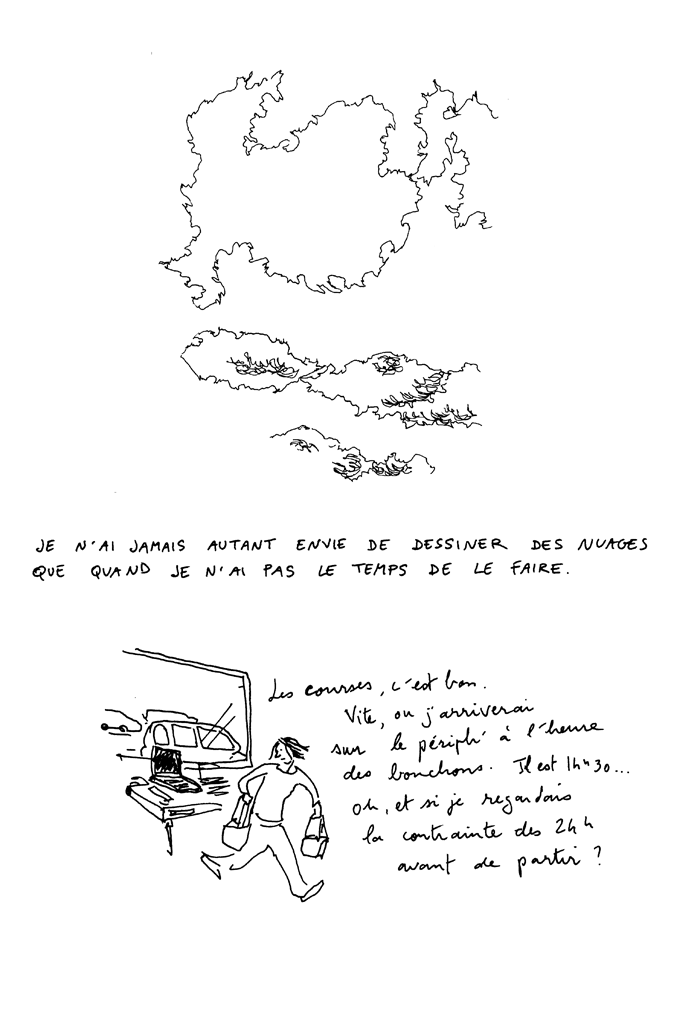 JE N'AI JAMAIS AUTANT ENVIE DE DESSINER DES NUAGES
QUE QUAND JE N'AI PAS LE TEMPS DE LE FAIRE.
Les courses, c'est bon.
Vite, ou j'arriverai
sur le périph' à l'heure
des bouchons. Il est 14h30...
Oh, et si je regardais
la contrainte des 24h
avant de partir ?